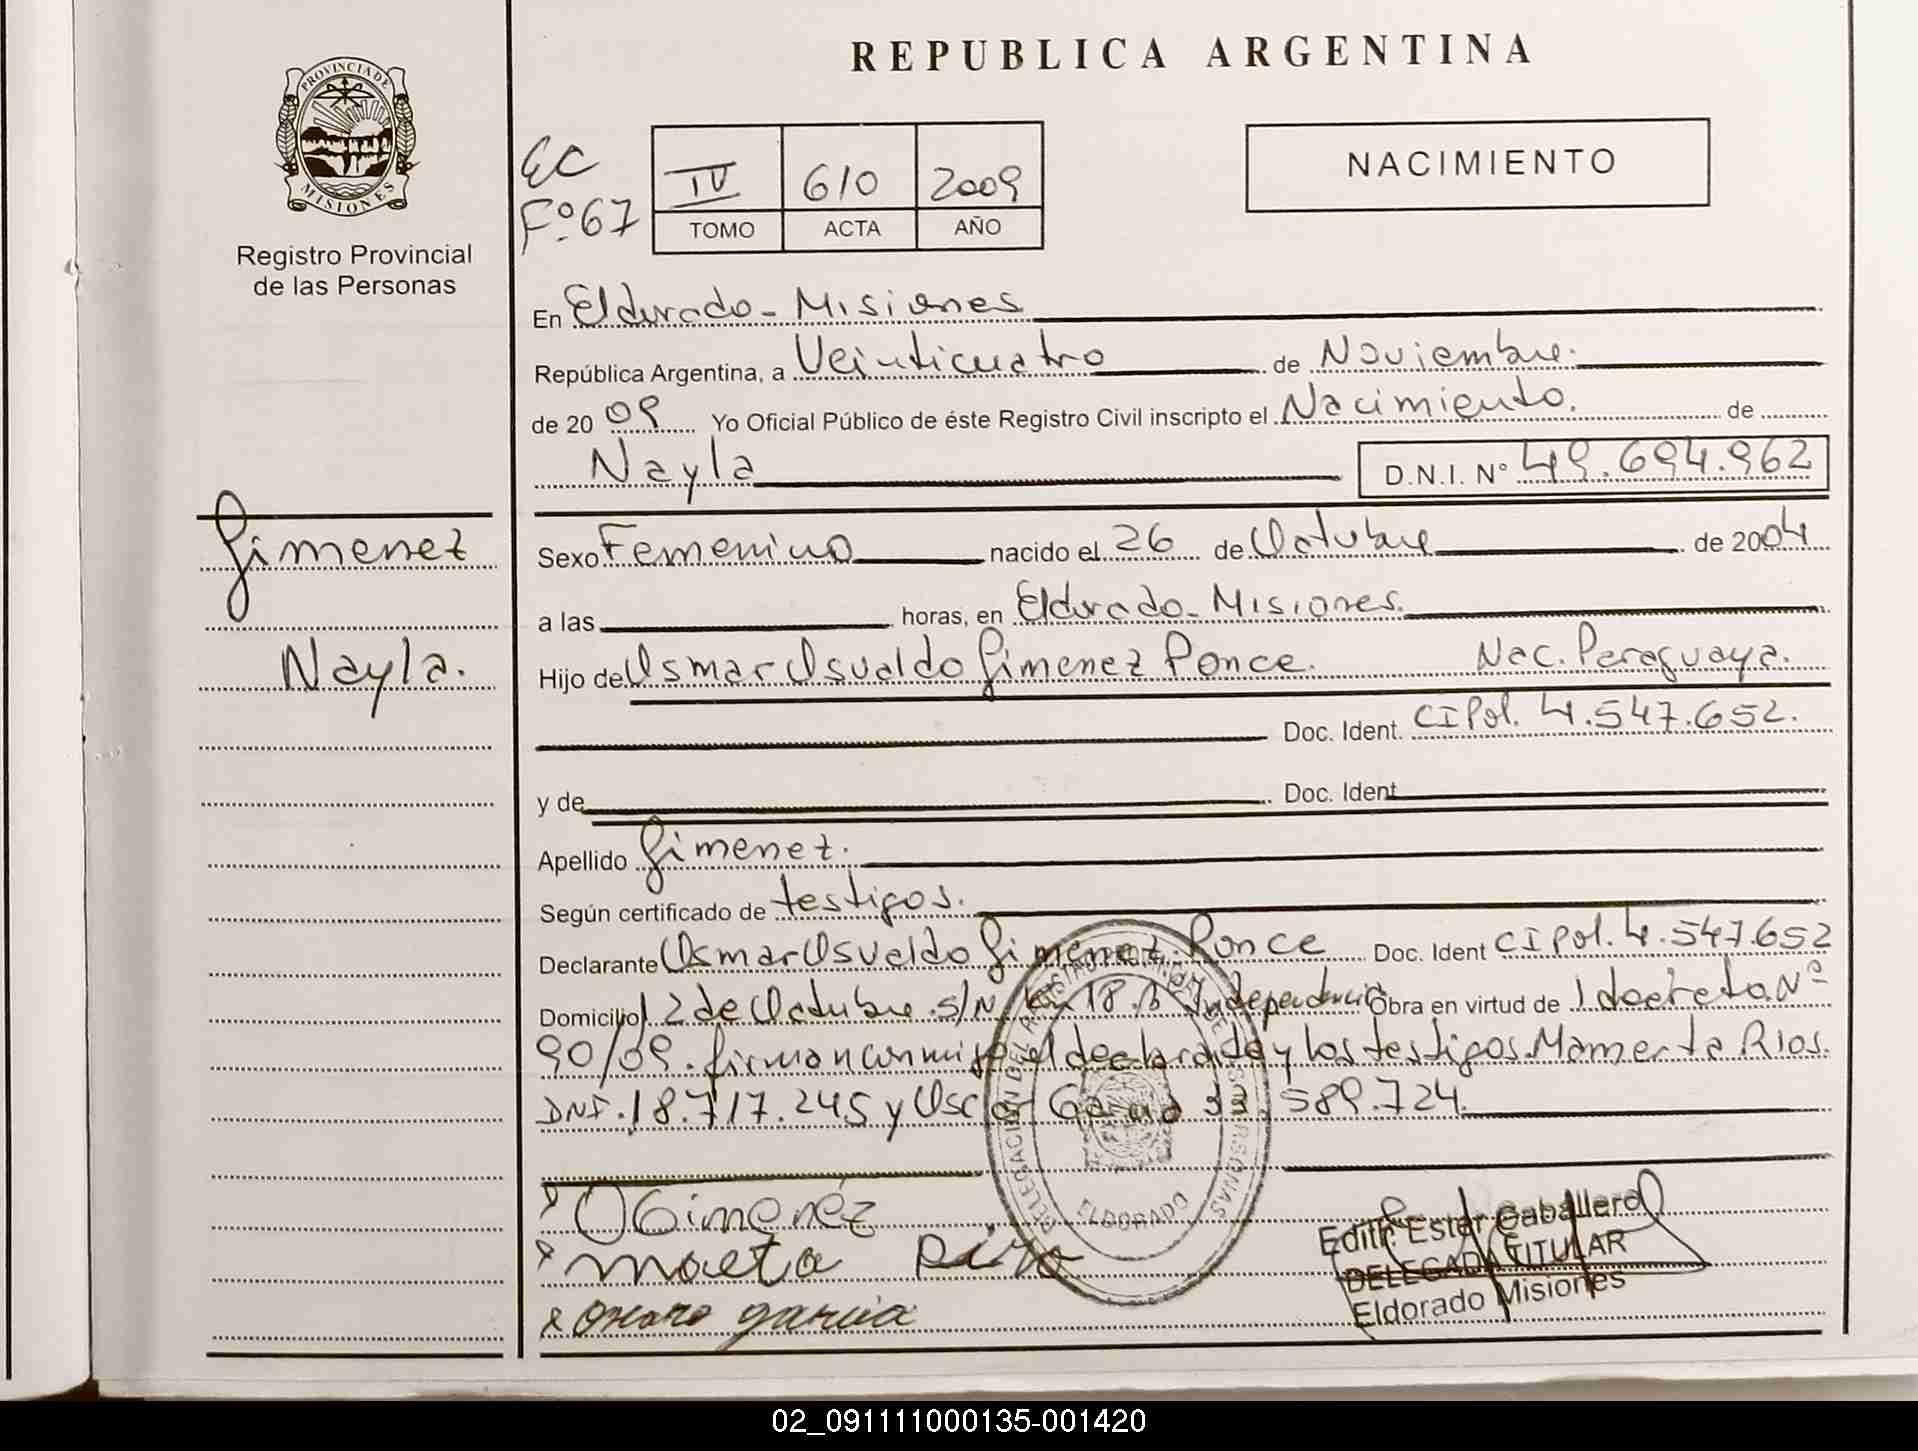 REPUBLICA ARGENTINA
PROVINCIA DE
MISIONES
Registro Provincial
de las Personas
EC
Fº 67
IV 610 2009
TOMO ACTA AÑO
NACIMIENTO
En Eldorado - Misiones
República Argentina, a Veinticuatro de Noviembre.
de 20 09 Yo Oficial Público de éste Registro Civil inscripto el Nacimiento. de
Nayla D.N.I. Nº 49.694.962
Gimenez
Nayla.
Sexo Femenino nacido el 26 de Octubre de 2004
a las horas, en Eldorado - Misiones.
Hijo de Osmar Osvaldo Gimenez Ponce. Nac. Paraguaya.
Doc. Ident. CI Pol. 4.547.652.
y de Doc. Ident
Apellido Gimenez.
Según certificado de testigos.
Declarante Osmar Osvaldo Gimenez Ponce Doc. Ident CI Pol. 4.547.652
Domicilio 12 de Octubre s/N Km 18 Bº Independencia Obra en virtud de 1 decreto Nº
90/09. firman conmigo el declarante y los testigos. Mamerta Rios.
DNI. 18.717.245 y Oscar 33.589.724
O Gimenéz
garcia
ELDORADO
Edith Ester Caballero
DELEGADA TITULAR
Eldorado Misiones
02_091111000135-001420